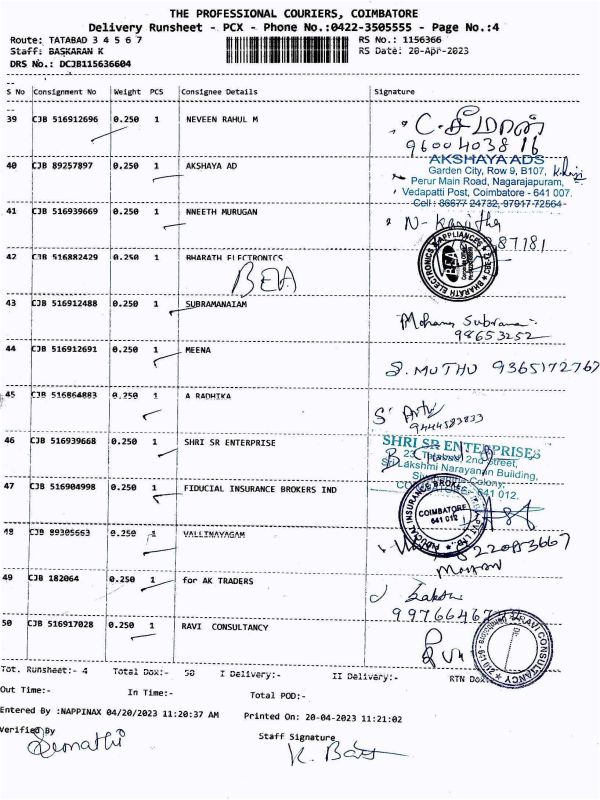 THE PROFESSIONAL COURIERS, COIMBATORE
Delivery Runsheet - PCX - Phone No.:0422-3505555 - Page No.:4
Route: TATABAD 3 4 5 6 7
RS No.: 1156366
Staff: BASKARAN K
RS Date: 20-Apr-2023
DRS No.: DCJB115636604
S No Consignment No Weight PCS Consignee Details Signature
39 CJB 516912696 0.250 1 NEVEEN RAHUL M
9600403816
40 CJB 89257897 0.250 1 AKSHAYA AD
AKSHAYA ADS
Garden City, Row 9, B107,
Perur Main Road, Nagarajapuram,
Vedapatti Post, Coimbatore - 641 007.
Cell : 86677 24732, 97917 72564
41 CJB 516939669 0.250 1 NNEETH MURUGAN
N- Kavitha
87181
42 CJB 516882429 0.250 1 BHARATH ELECTRONICS
BEA
BHARATH ELECTRONICS & APPLIANCES
BEA
43 CJB 516912488 0.250 1 SUBRAMANAIAM
Mohana Subrama
98653252
44 CJB 516912691 0.250 1 MEENA
S. MUTHU 9365172767
45 CJB 516864883 0.250 1 A RADHIKA
9444583833
46 CJB 516939668 0.250 1 SHRI SR ENTERPRISE
SHRI SR ENTERPRISES
23, Tatabad, 2nd Street,
Sri Lakshmi Narayanan Building,
Colony,
641 012.
47 CJB 516904998 0.250 1 FIDUCIAL INSURANCE BROKERS IND
FIDUCIAL INSURANCE BROKERS
COIMBATORE
641 012
48 CJB 89305663 0.250 1 VALLINAYAGAM
49 CJB 182064 0.250 1 for AK TRADERS
50 CJB 516917028 0.250 1 RAVI CONSULTANCY
RAVI CONSULTANCY
Tot. Runsheet:- 4 Total Dox:- 50 I Delivery:- II Delivery:- RTN Dox:-
Out Time:- In Time:- Total POD:-
Entered By :NAPPINAX 04/20/2023 11:20:37 AM Printed On: 20-04-2023 11:21:02
Verified By
Staff Signature